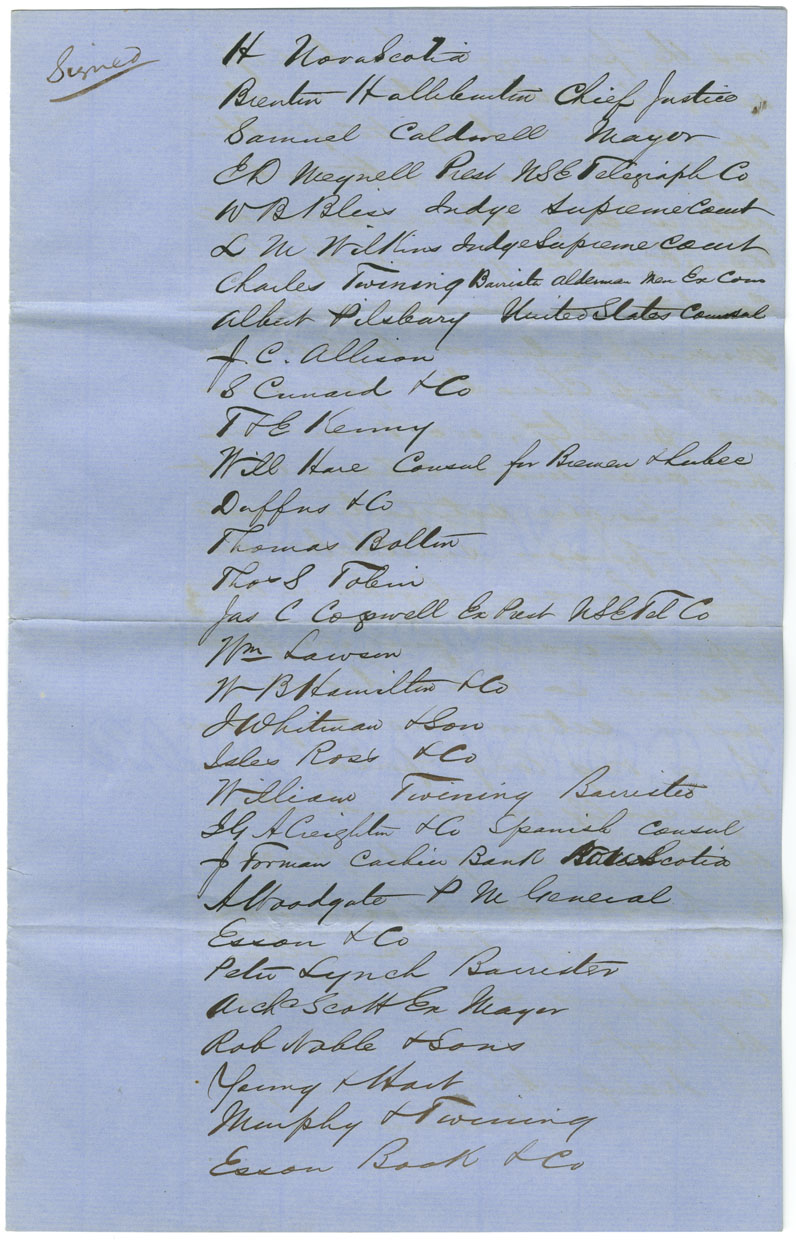 Signed
H NovaScotia
Brenton Halliburton Chief Justice
Samuel Caldwell Mayor
E D Meynell Prest NSE Telegraph Co
W B Bliss Judge Supreme Court
L M Wilkins Judge Supreme Court
Charles Twining Barrister Alderman Mem Ex Com
Albert Pilsbury United States Counsal
J. C. Allison
S Cunard & Co
T & E Kenny
Will Hare Consul for Bremen & Lubec
Duffus & Co
Thomas Bolton
Thos S Tobin
Jas C Cogswell Ex Prest NSE Tel Co
Wm Lawson
W B Hamilton & Co
J Whitman & Son
Isles Ross & Co
William Twining Barrister
I G A Creighton & Co Spanish Consul
J Forman Cashier Bank Scotia
A Woodgate P M General
Esson & Co
Peter Lynch Barrister
Archd Scott Ex Mayor
Rob Noble & Sons
Young & Hart
Murphy & Twining
Esson Boak & Co